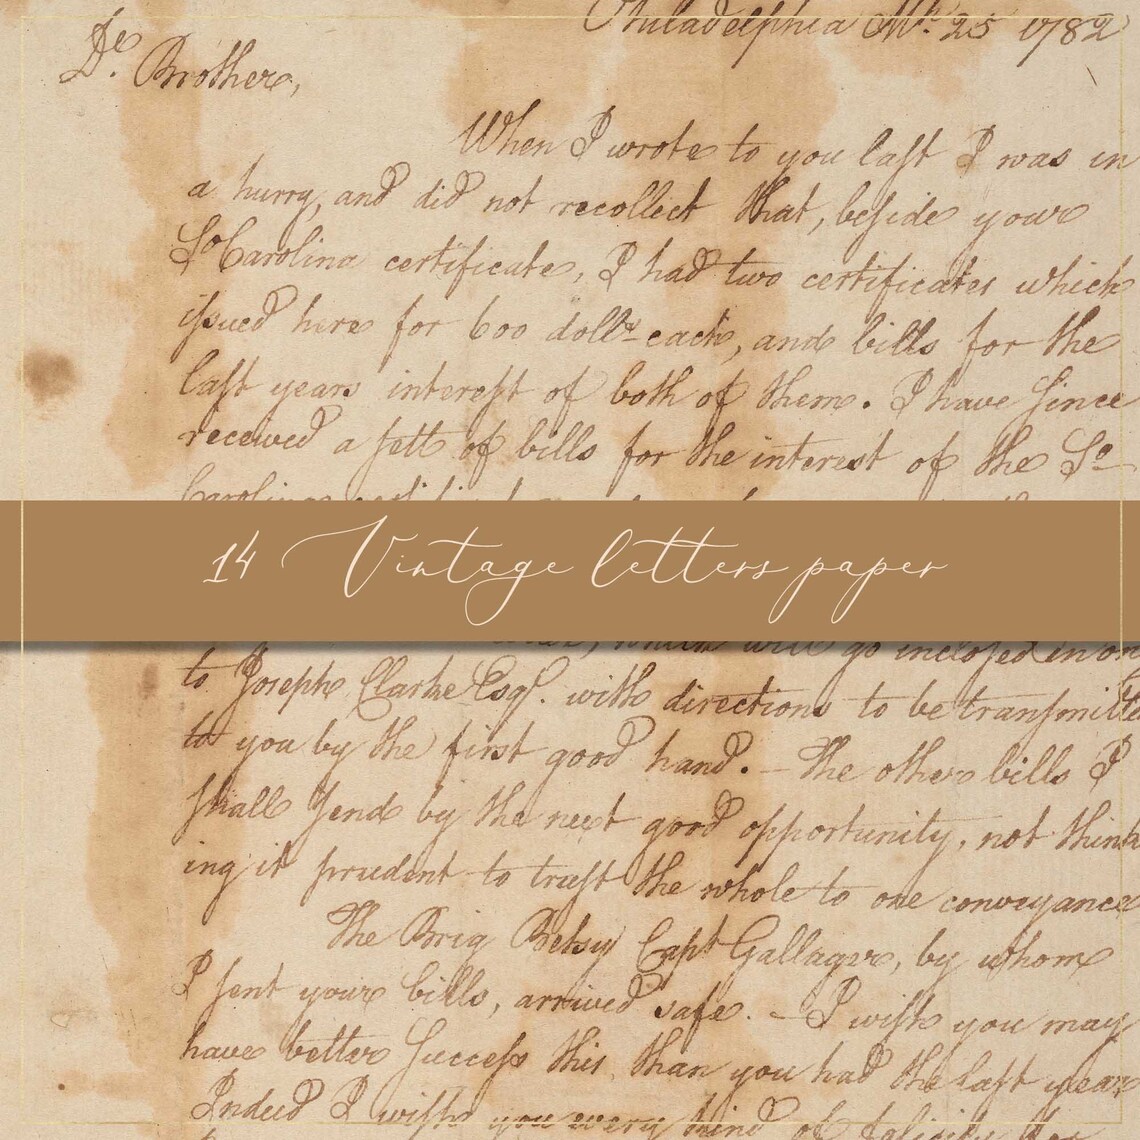 Philadelphia Mr. 25 1782
De. Brother,
When I wrote to you laſt I was in
a hurry, and did not recollect that, beſide your
So Carolina certificate, I had two certificates which
iſsued here for 600 dollrs each, and bills for the
laſt years intereſt of both of them. I have ſince
received a ſett of bills for the interest of the So
Carolina
14 Vintage letters paper
which will go incloſed
to Joseph Clarke Esqr. with directions to be tranſmitte
to you by the first good hand. – The other bills I
ſhall ſend by the next good opportunity, not think
ing it prudent to truſt the whole to one conveyance
The Brig Betsy Capt Gallager, by whom
I ſent your bills, arrived safe. – I wiſh you may
have better ſucceſs this than you had the laſt year
Indeed I wiſh you every kind of